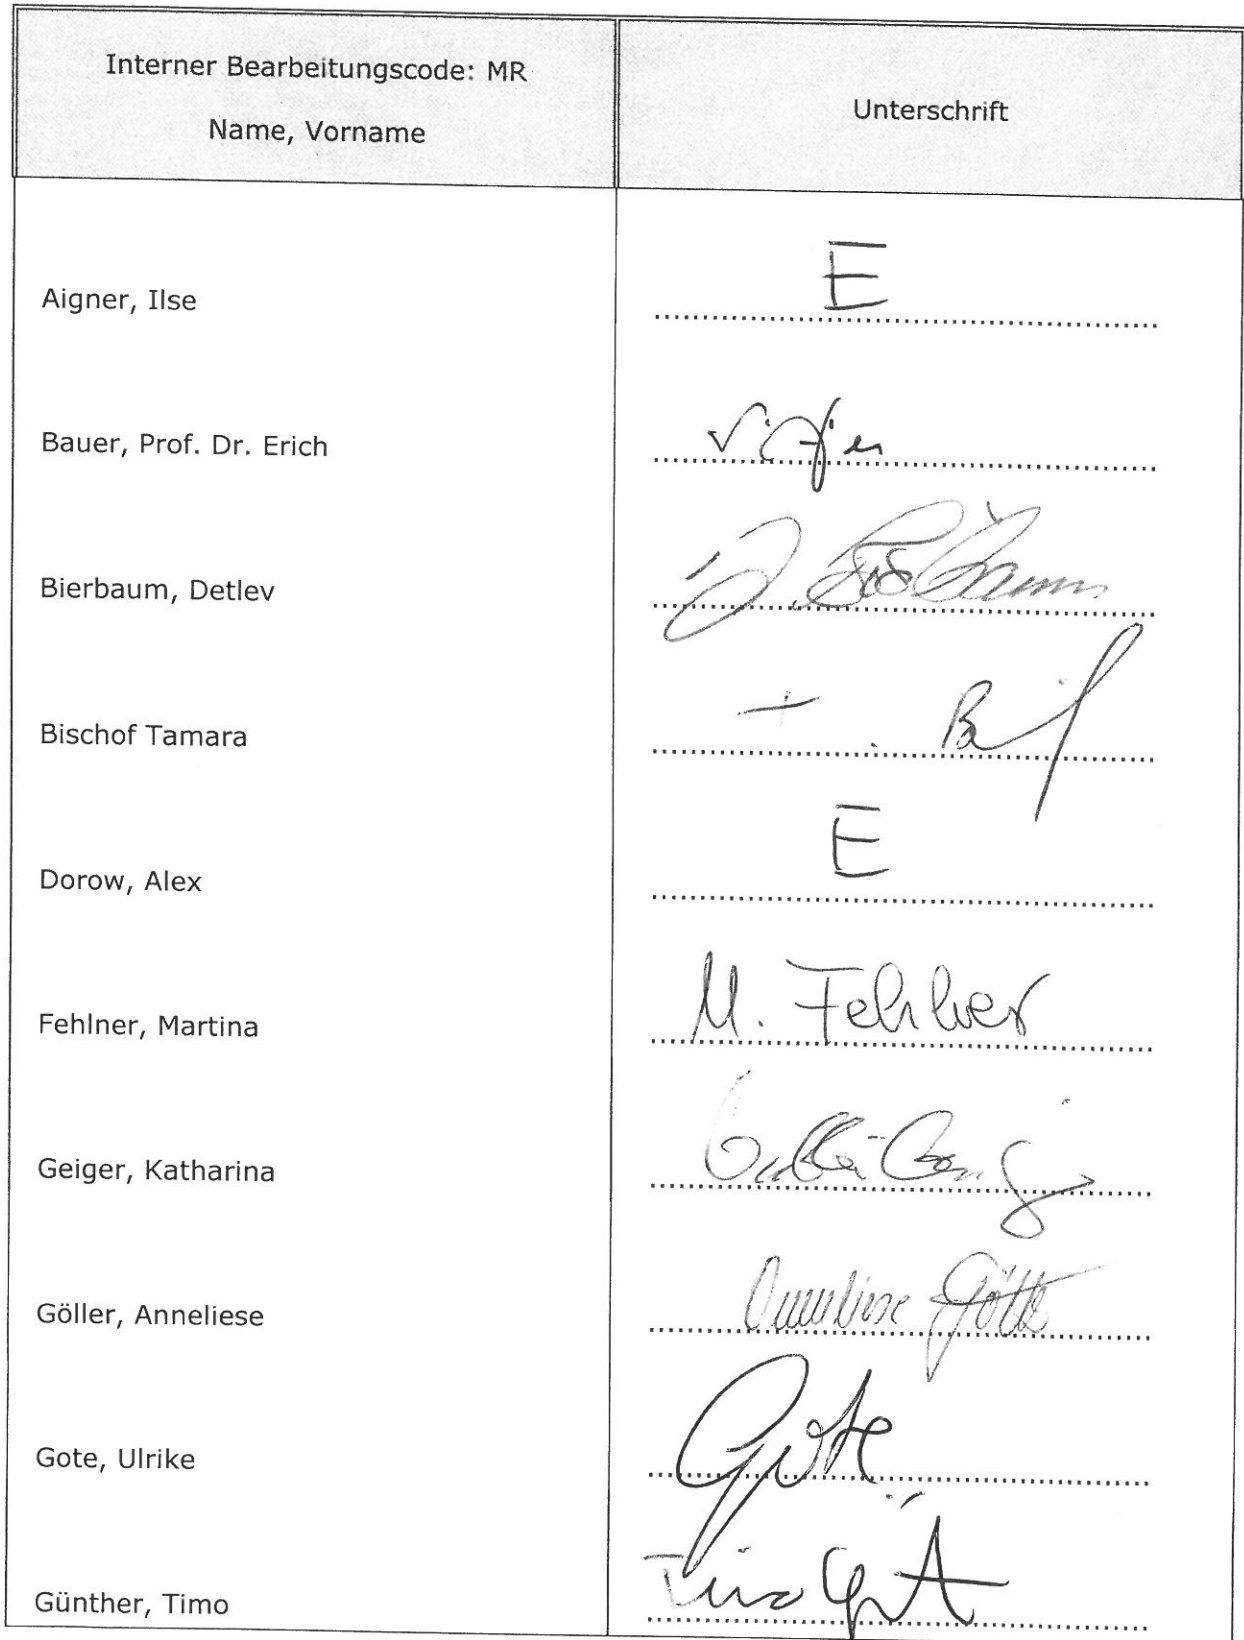 Interner Bearbeitungscode: MR
Name, Vorname
Unterschrift
Aigner, Ilse
E
Bauer, Prof. Dr. Erich
Bierbaum, Detlev
Bischof Tamara
Dorow, Alex
E
Fehlner, Martina
M. Fehlner
Geiger, Katharina
Göller, Anneliese
Anneliese Göller
Gote, Ulrike
Gote
Günther, Timo
Timo